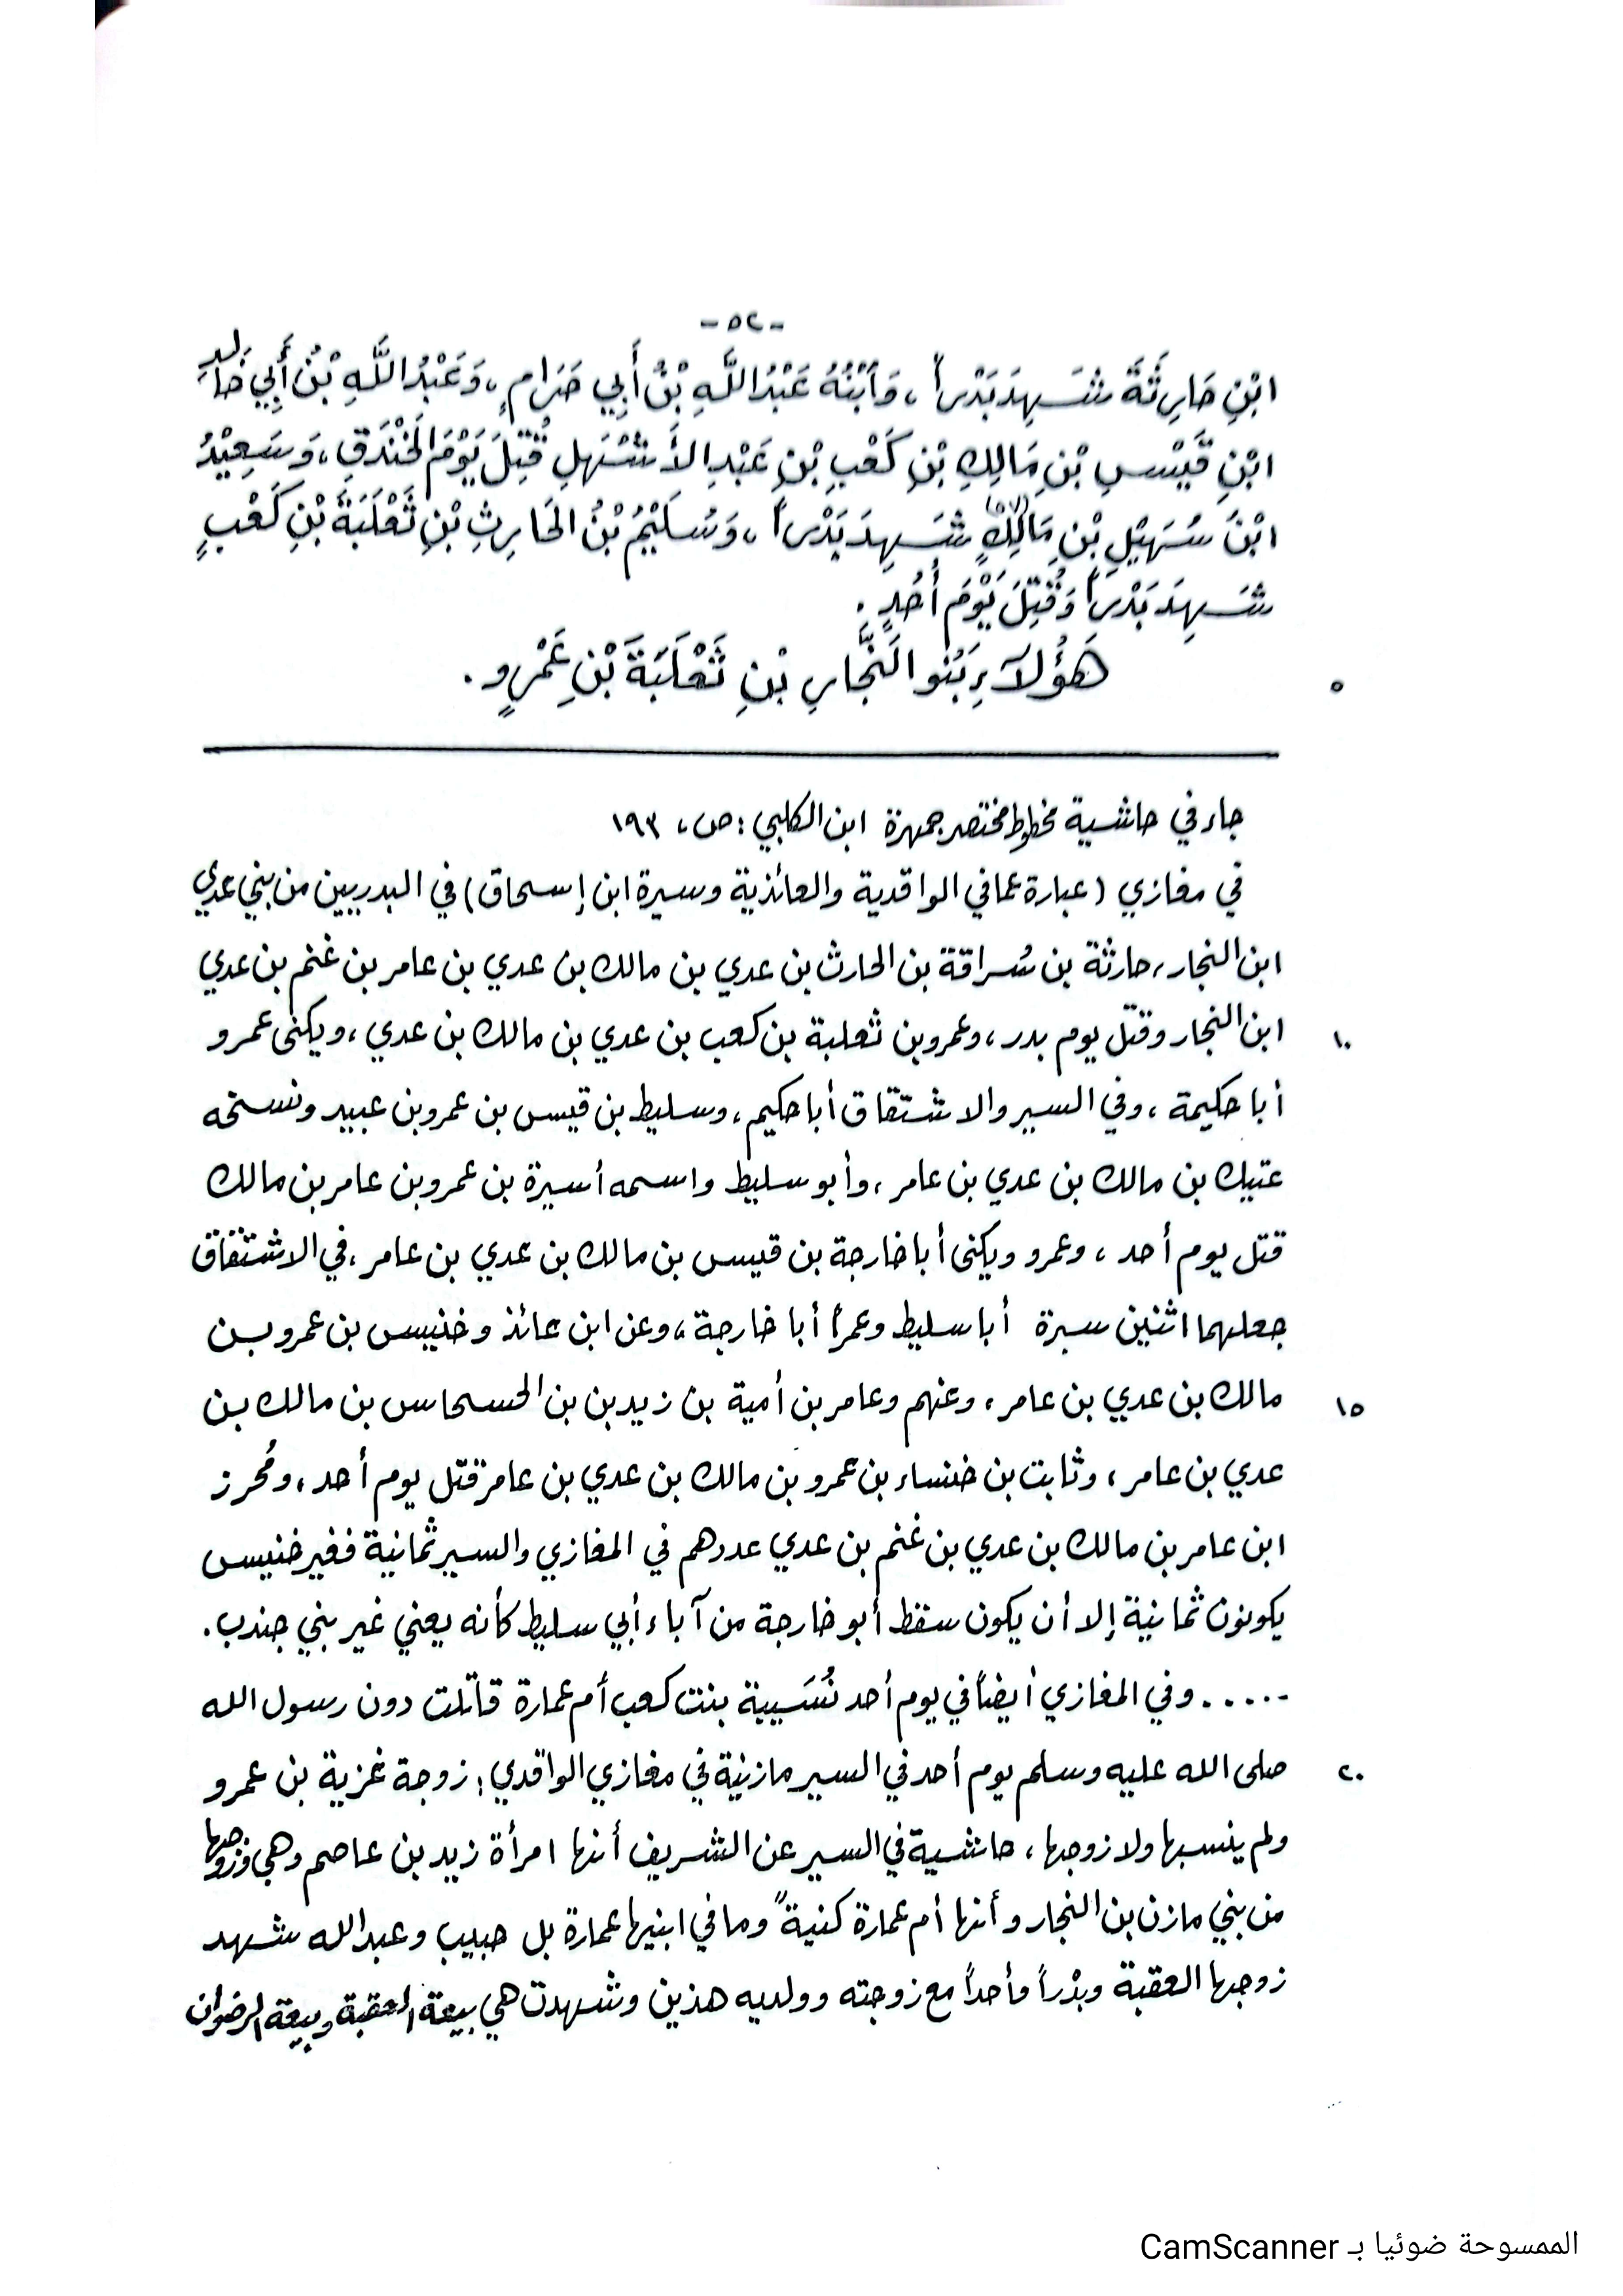 -٥٢-
ابْنِ حَارِثَةَ شَهِدَ بَدْراً، وَابْنُهُ عَبْدُ اللَّهِ بْنُ أَبِي حَرَامٍ، وَعَبْدُ اللَّهِ بْنُ أَبِي خَالِدِ
ابْنِ قَيْسِ بْنِ مَالِكِ بْنِ كَعْبِ بْنِ عَبْدِ الأَشْهَلِ قُتِلَ يَوْمَ الخَنْدَقِ، وَسَعِيْدُ
ابْنُ سُهَيْلِ بْنِ مَالِكٍ شَهِدَ بَدْراً، وَسُلَيْمُ بْنُ الحَارِثِ بْنِ ثَعْلَبَةَ بْنِ كَعْبٍ
شَهِدَ بَدْراً وَقُتِلَ يَوْمَ أُحُدٍ.
هَؤُلَآءِ بَنُو النَّجَّارِ بْنِ ثَعْلَبَةَ بْنِ عَمْرٍو.
٥
جاء في حاشية مخطوط مختصر جمهرة ابن الكلبي: ص، ١٩٣
في مغازي (عبارة عما في الواقدية والعائذية وسيرة ابن إسحاق) في البدريين من بني عدي
ابن النجار، حارثة بن سُراقة بن الحارث بن عدي بن مالك بن عدي بن عامر بن غنم بن عدي
ابن النجار وقتل يوم بدر، وعمرو بن ثعلبة بن كعب بن عدي بن مالك بن عدي، ويكنى عمرو
١٠
أبا حكيمة، وفي السير والاشتقاق أبا حكيم، وسليط بن قيس بن عمرو بن عبيد ونسخه
عتيك بن مالك بن عدي بن عامر، وأبو سليط واسمه أسيرة بن عمرو بن عامر بن مالك
قتل يوم أحد، وعمرو ويكنى أبا خارجة بن قيس بن مالك بن عدي بن عامر، في الاشتقاق
جعلهما اثنين سبرة أبا سليط وعمراً أبا خارجة، وعن ابن عائذ وخنيس بن عمرو بن
مالك بن عدي بن عامر، وعنهم وعامر بن أمية بن زيد بن بن الحسحاس بن مالك بن
١٥
عدي بن عامر، وثابت بن خنساء بن عمرو بن مالك بن عدي بن عامر قتل يوم أحد، ومُحرز
ابن عامر بن مالك بن عدي بن غنم بن عدي عددهم في المغازي والسير ثمانية فغير خنيس
يكونون ثمانية إلا أن يكون سقط أبو خارجة من آباء أبي سليط كأنه يعني غير بني جندب.
..... وفي المغازي أيضاً في يوم أحد نُسَيبة بنت كعب أم عمارة قاتلت دون رسول الله
صلى الله عليه وسلم يوم أحد في السير مازنية في مغازي الواقدي: زوجة غزية بن عمرو
٢٠
ولم ينسبها ولا زوجها، حاشية في السير عن الشريف أنها امرأة زيد بن عاصم وهي وزوجها
من بني مازن بن النجار وأنها أم عمارة كنيةً وما في ابنيها عمارة بل حبيب وعبد الله شهد
زوجها العقبة وبدْراً وأحداً مع زوجته وولديه هذين وشهدت هي بيعة العقبة وبيعة الرضوان
الممسوحة ضوئيا بـ CamScanner